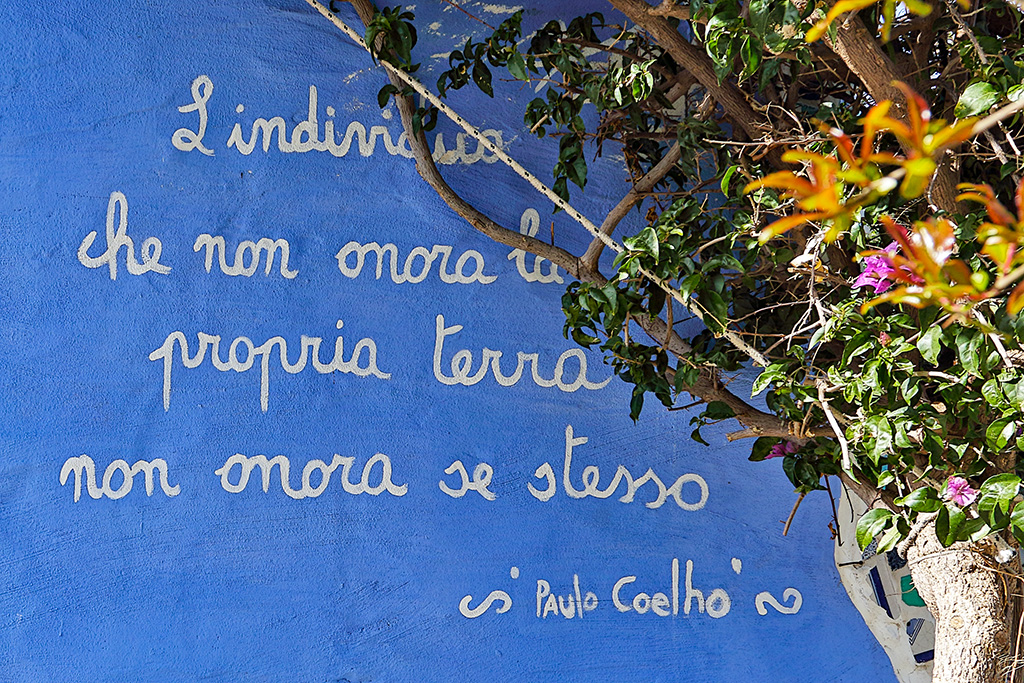 L'individuo
che non onora la
propria terra
non onora se stesso
~ Paulo Coelho ~